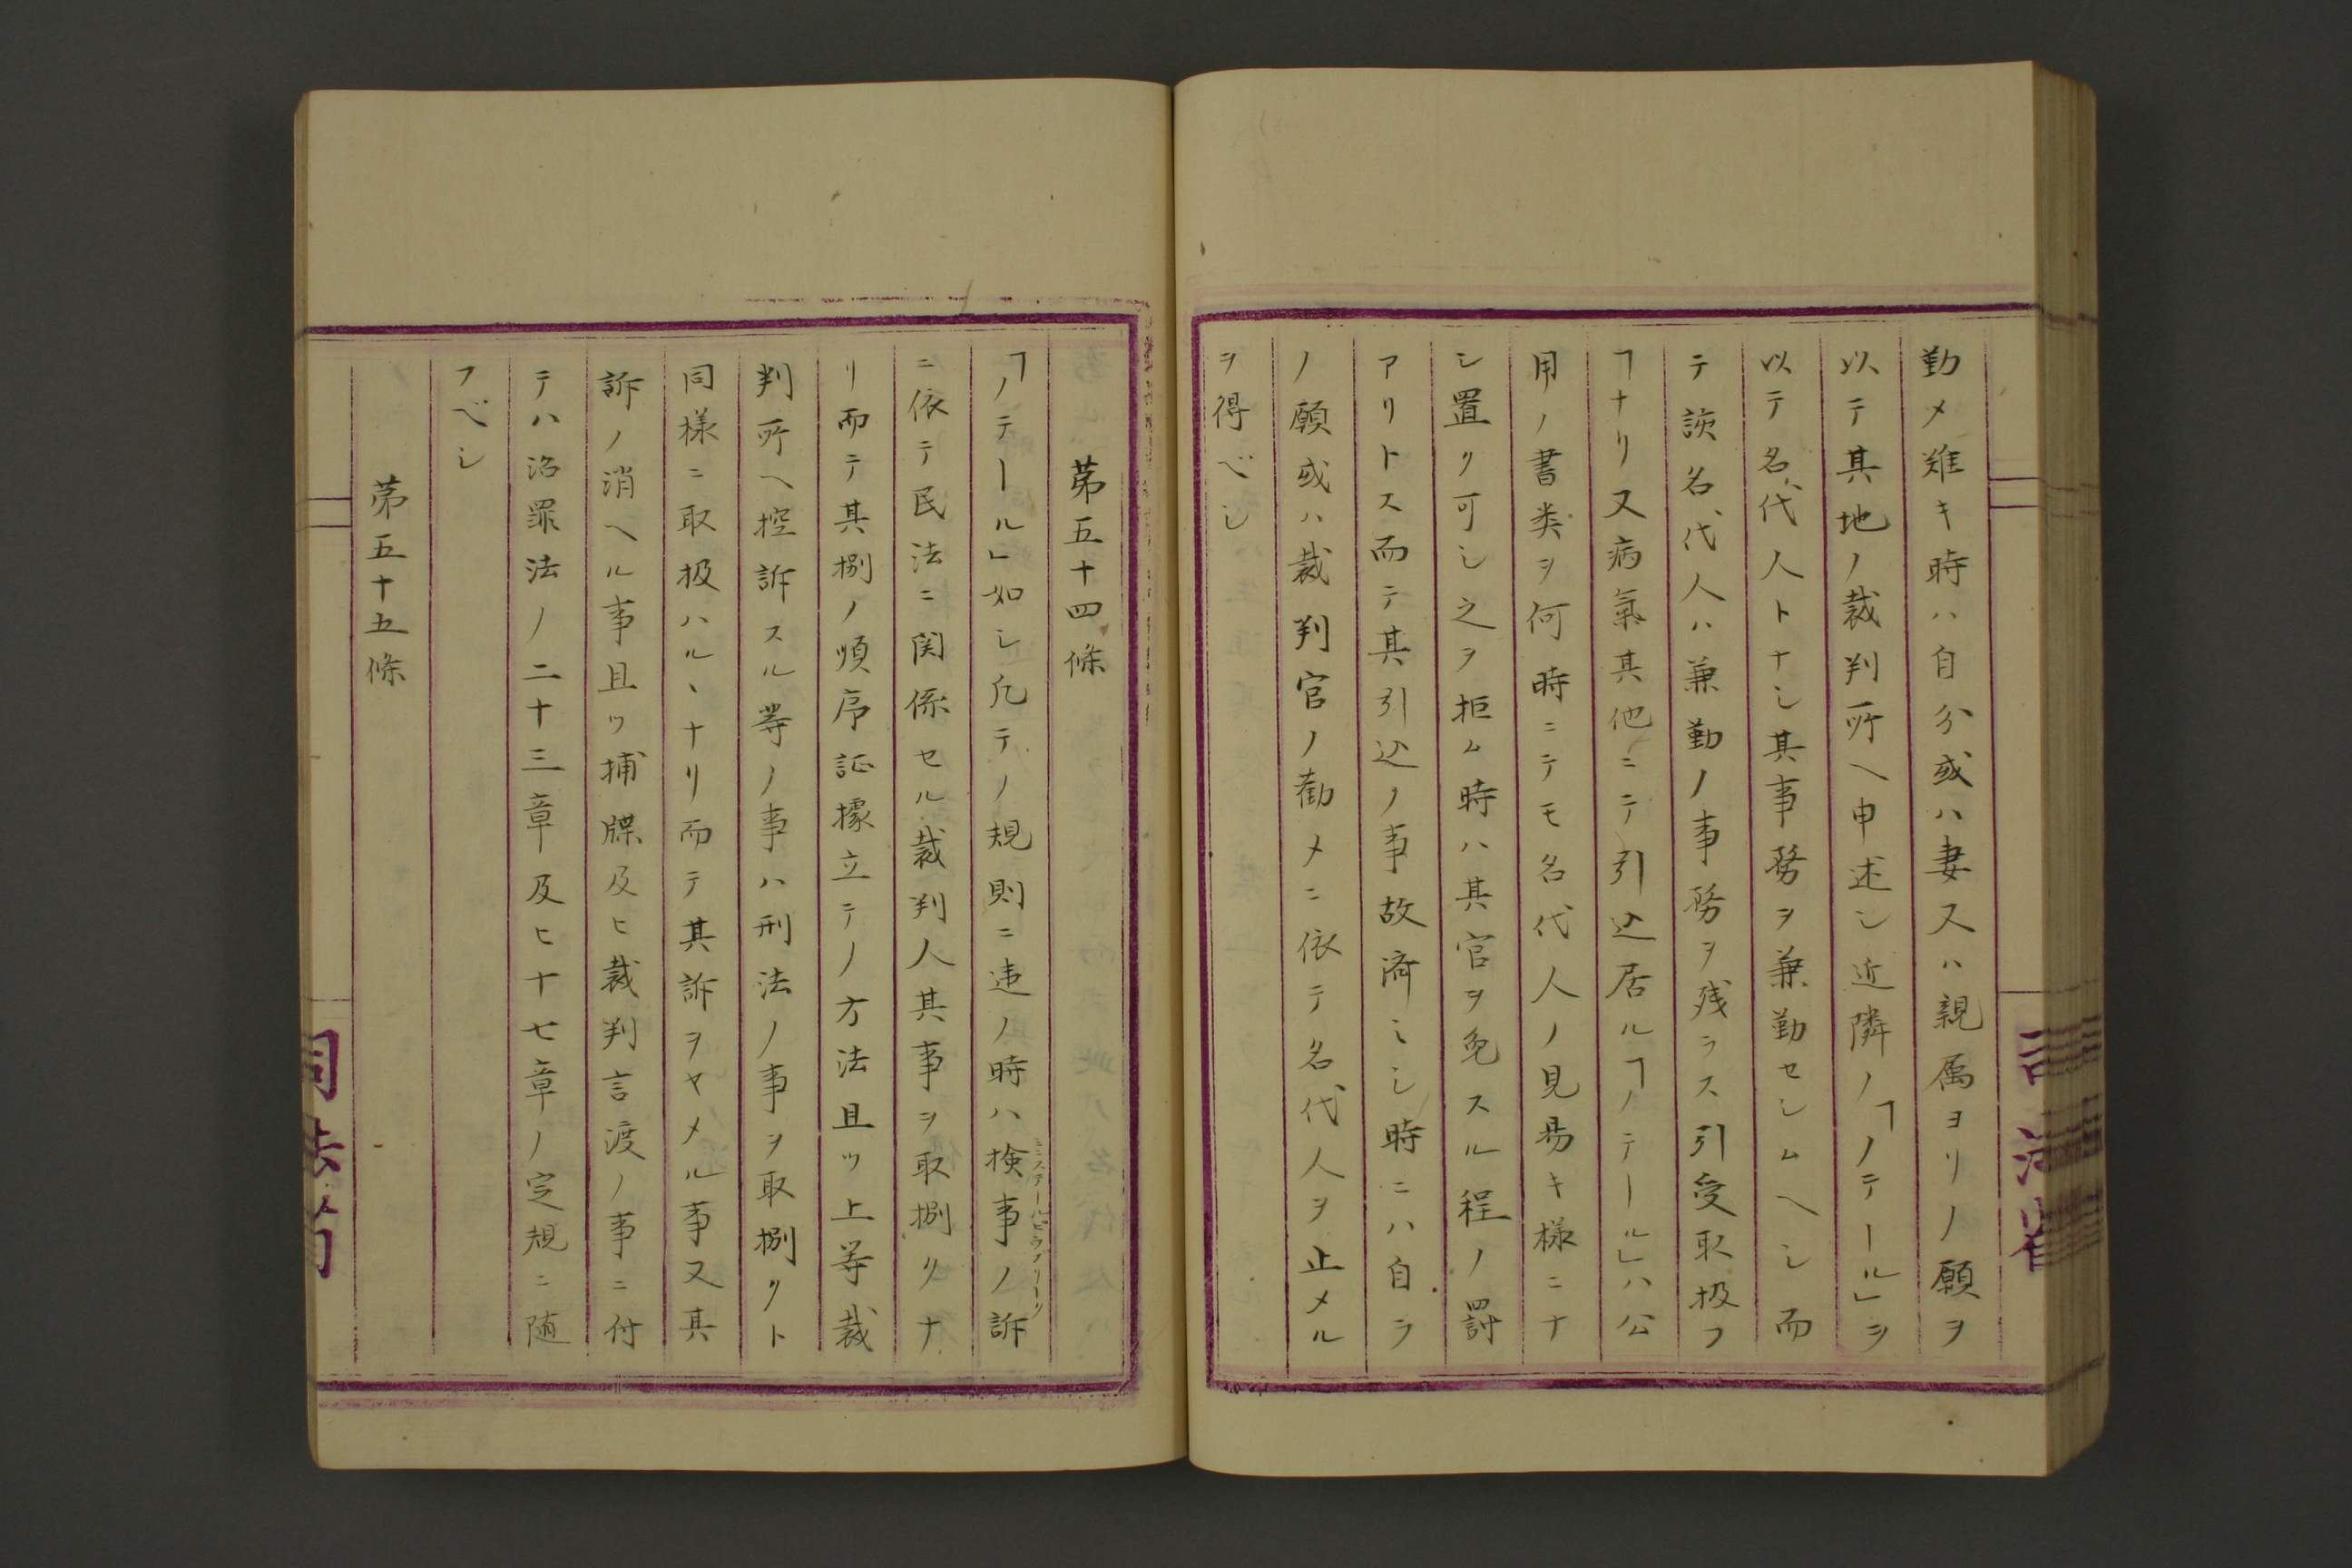 勤メ難キ時ハ自分或ハ妻又ハ親属ヨリノ願ヲ
以テ其地ノ裁判所ヘ申述シ近隣ノ「ノテール」ヲ
以テ名代人トナシ其事務ヲ兼勤セシムヘシ而
テ該名代人ハ兼勤ノ事務ヲ残ラス引受取扱フ
ヿナリ又病氣其他ニテ引込居ル「ノテール」ハ公
用ノ書类ヲ何時ニテモ名代人ノ見易キ様ニナ
シ置ク可シ之ヲ拒ム時ハ其官ヲ免スル程ノ罰
アリトス而テ其引込ノ事故濟ミシ時ニハ自ラ
ノ願或ハ裁判官ノ勧メニ依テ名代人ヲ止メル
ヲ得ベシ
第五十四條
「ノテール」如シ凡テノ規則ニ違ノ時ハ検事ノ訴
ミニステールピュブリーク
ニ依テ民法ニ関係セル裁判人其事ヲ取捌クナ
リ而テ其捌ノ順序証據立テノ方法且ツ上等裁
判所ヘ控訴スル等ノ事ハ刑法ノ事ヲ取捌クト
同様ニ取扱ハルヽナリ而テ其訴ヲヤメル事又其
訴ノ消ヘル事且ツ捕牒及ヒ裁判言渡ノ事ニ付
テハ治罪法ノ二十三章及ヒ十七章ノ定規ニ随
フベシ
第五十五條
司法省